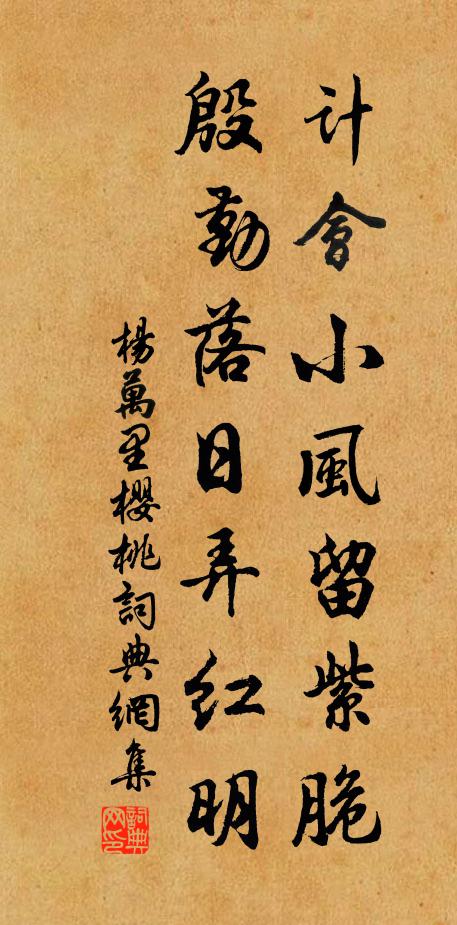 計會小風留紫脆
殷勤落日弄紅明
楊萬里櫻桃詞典網集
詞典網印